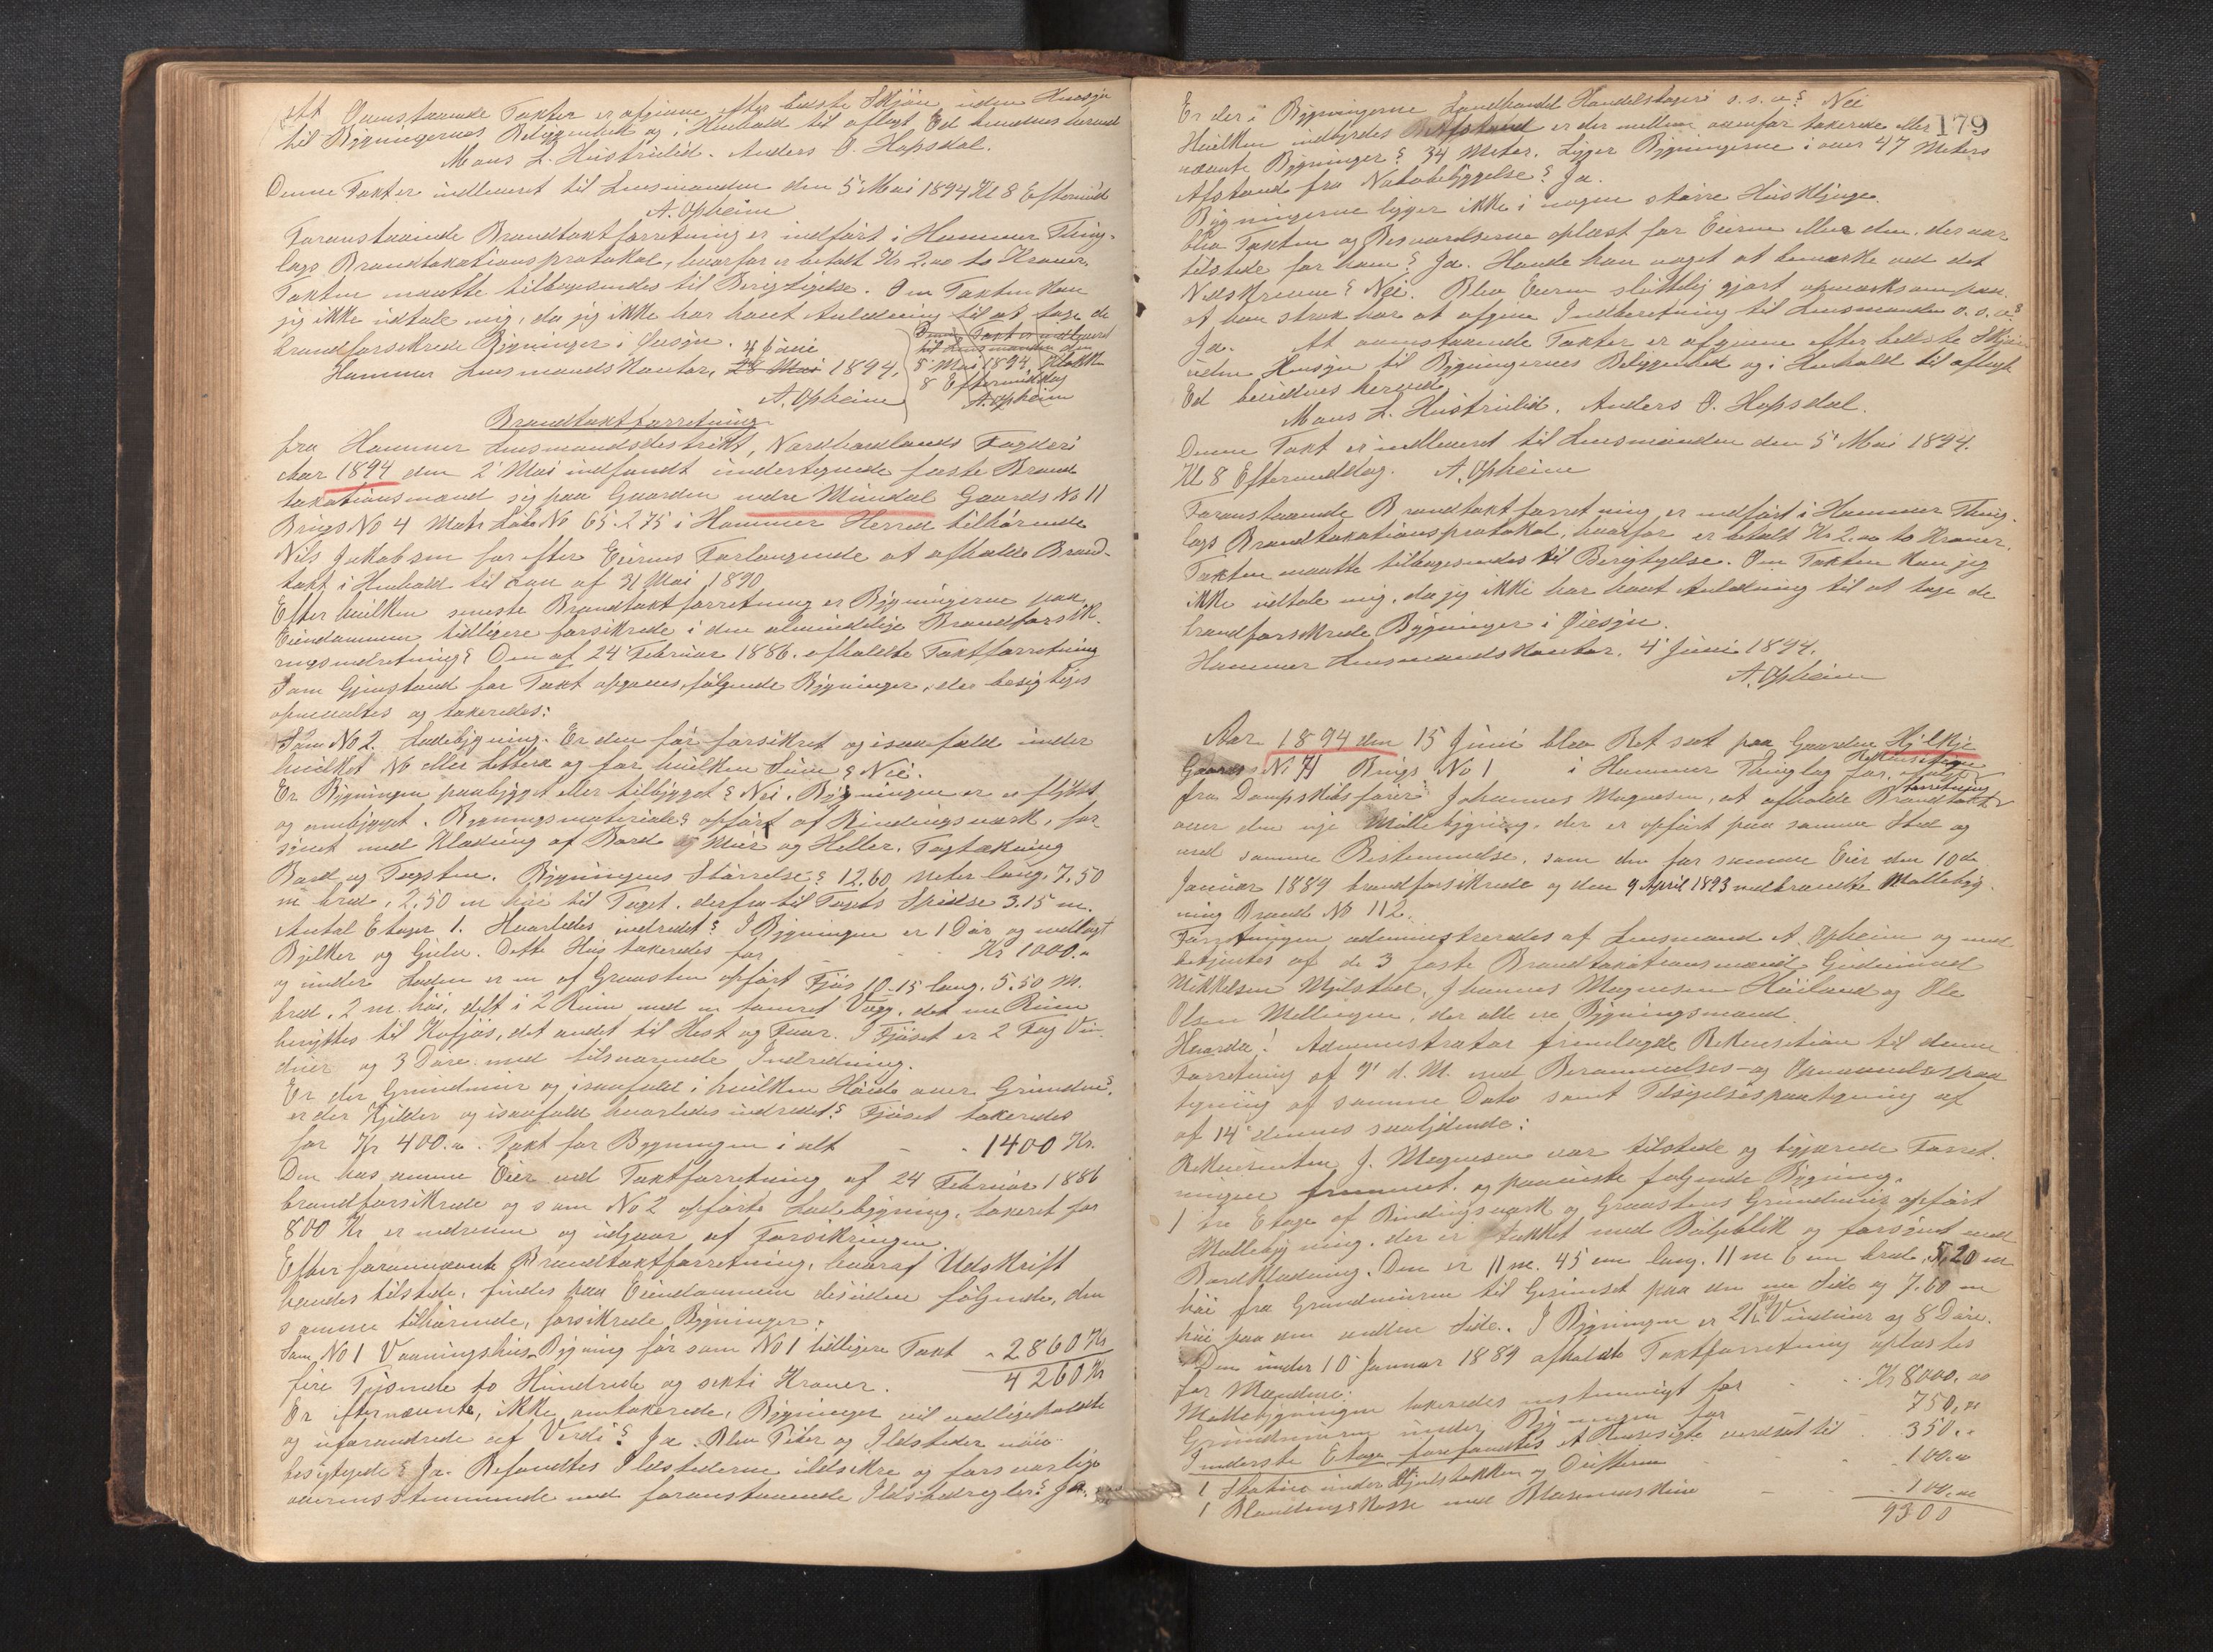 Att Ovenstaaende Taxter er afgivne efter bedste Skjön uden Hensyn
til Bygningernes Beliggenhed og i Henhold til aflagt Ed bevidnes herved
Mons L. Hustrulid. Anders O. Hopsdal.
Denne Taxt er indleveret til Lensmanden den 5' Mai 1894 Kl 8 Eftermid
A. Opheim
Foranstaaende Brandtaxtforretning er indført i Hammer Thing-
lags Brandtaxationsprotokol, hvorfor er betalt Kr 2.00 to Kroner.
Taxten maatte tilbagesendes til Berigtigelse. Om Taxten kan
jeg ikke udtale mig, da jeg ikke har havt Anledning til at tage de
brandforsikrede Bygninger i Øiesyn.
4 Juni
Hammer Lensmandskontor, 28 Mai 1894.
A. Opheim
Denne Taxt er indleveret
til Lensmanden den
5' Mai 1894 Klokken
8 Eftermiddag
A. Opheim
Brandtaxtforretning
fra Hammer Lensmandsdistrikt, Nordhordlands Fogderi
Aar 1894 den 2' Mai indfandt undertegnede faste Brand
taxationsmænd sig paa Gaarden indre Mundal Gaards No 11
Brugs No 4 Matr Løbe No 65.275 i Hammer Herred tilhörende
Nils Jakobsen for efter Eierens Forlangende at afholde Brand-
taxt i Henhold til Lov af 31 Mai 1890.
Efter hvilken seneste Brandtaxtforretning er Bygningerne paa
Eiendommen tidligere forsikrede i den almindelige Brandforsik-
ringsindretning? Den af 24' Februar 1886. afholdte Taxtforretning
Som Gjenstand for Taxt opgaves følgende Bygninger, der besigtiges
opmaaltes og taxeredes:
Som No 2. Ladebygning. Er den før forsikret og isaafald under
hvilket No eller Littera og for hvilken Sum? Nei.
Er Bygningen paabygget eller tilbygget? Nei. Bygningen er nu flyttet
og ombygget. Bygningsmateriale? opført af Bindingsværk, for
synet med Klædning af Bord og Muer og Heller. Tagtækning
Bord og Tagsten. Bygningens Størrelse? 12.60 Meter lang, 7.50
m bred, 2.50 m höi til Taget, derfra til Tagets Spidse 3.15 m.
Antal Etager 1. Hvorledes indredet? I Bygningen er 1 Dør og indlagt
Bjelker og Gulv. Dette Hus taxeredes for - - - Kr 1000.00
og under Laden er en af Graasten opført Fjøs 10.15 lang, 5.50 m.
bred, 2 m. höi, delt i 2 Rum med en tømret Væg, det ene Rum
benyttes til Kofjös, det andet til Hest og Faar. I Fjöset er 2 Fag Vin-
duer og 3 Döre med tilsvarende Indredning.
Er der Grundmur og isaafald i hvilken Höide over Grunden?
er der Kjelder og isaafald hvorledes indredet? Fjöset taxeredes
for Kr 400.00. Taxt for Bygningen i alt - - 1400 Kr.
Den hos samme Eier ved Taxtforretning af 24 Februar 1886
brandforsikrede og som No 2 opförte Ladebygning, taxeret for
800 Kr er nedreven og udgaar af Forsikringen.
Efter forannævnte Brandtaxtforretning, hvoraf Udskrift
havdes tilstede, findes paa Eiendommen desuden følgende, den
samme tilhörende, forsikrede Bygninger:
Som No 1 Vaaningshus Bygning før som No 1 tidligere Taxt - 2860 Kr
fire Tusinde to Hundrede og sexti Kroner. 4260 Kr
Er efternævnte, ikke omtaxerede, Bygninger vel vedligeholdte
og uforandrede af Værdi? Ja. Blev Piber og Ildsteder nöie
besigtigede? Ja. Befandtes Ildstederne ildsikre og forsvarlige
overensstemmende med foranstaaende Ildstedregler? Ja.
179
Er der i Bygningerne Landhandel Handelstageri o.s.v.? Nei
Hvilken indbyrdes Afstand er der mellem ovenfor taxerede eller
nævnte Bygninger? 34 Meter. Ligger Bygningerne i over 47 Meters
Afstand fra Nabobebyggelse? Ja.
Bygningerne ligger ikke i nogen större Husklynge.
Blev Taxten og Besvarelserne oplæst for Eieren eller den, der var
tilstede for ham? Ja. Havde han noget at bemærke ved det
Nedskrevne? Nei. Blev Eieren sluttelig gjort opmærksom paa
at han strax har at afgive Indberetning til Lensmanden o.s.v.?
Ja. At ovenstaaende Taxter er afgivne efter bedste Skjön
uden Hensyn til Bygningernes Beliggenhed og i Henhold til aflagt
Ed bevidnes herved
Mons L. Hustrulid. Anders O. Hopsdal.
Denne Taxt er indleveret til Lensmanden den 5' Mai 1894.
Kl 8 Eftermiddag. A. Opheim
Foranstaaende Brandtaxtforretning er indført i Hammer Thing-
lags Brandtaxationsprotokol, hvorfor er betalt Kr 2.00 to Kroner.
Taxten maatte tilbagesendes til Berigtigelse. Om Taxten kan jeg
ikke udtale mig, da jeg ikke har havt Anledning til at tage de
brandforsikrede Bygninger i Øiesyn.
Hammer Lensmandskontor, 4' Juni 1894.
A. Opheim
Aar 1894 den 15 Juni blev Ret sat paa Gaarden Hjelkje
Gaards No 71 Brugs No 1 i Hammer Thinglag for, efter Rekvisition
fra Dampskibsfører Johannes Magnesen, at afholde Brandtaxtforretning
over den nye Møllebygning, der er opført paa samme Sted og
med samme Bestemmelse, som den for samme Eier den 10de
Januar 1889 brandforsikrede og den 9 April 1893 nedbrændte Møllebyg-
ning Brand No 112.
Forretningen administreredes af Lensmand A. Opheim og med
betjentes af de 3 faste Brandtaxationsmænd Gudmund
Mikkelsen Mjelstad, Johannes Magnesen Høiland og Ole
Olsen Mellingen, der alle ere Bygningsmænd.
Hvorda! Administrator fremlagde Rekvisition til denne
Forretning af 7' d. M. med Berammelses- og Opnævnelsespaa
tegning af samme Dato samt Tilsigelsespaategning af
af 14' dennes saalydende:
Rekvirenten J. Magnesen var tilstede og begjærede Forret-
ningen fremmet, og paaviste følgende Bygning.
1 tre Etage af Bindingsværk og Graastens Grundmur opført
Møllebygning, der er tækket med Bølgeblik og forsynet med
Bordklædning. Den er 11 m. 45 cm lang, 11 m 6 cm bred, 5,20 m
höi fra Grundmuren til Gesimset paa den ene Side og 7.60 m
höi paa den anden Side. I Bygningen er 21 Fag Vinduer og 8 Döre.
Den under 10' Januar 1889 afholdte Taxtforretning oplæstes
for Mændene.
Møllebygningen taxeredes enstemmigt for - - Kr 8000,00
Grundmuren under Bygningen for - 750,00
I underste Etage forefandtes et værdsat til 350,00
1 Stativ under og Drifterne - - 100.00
1 Blandingskasse med - 100.00
9300